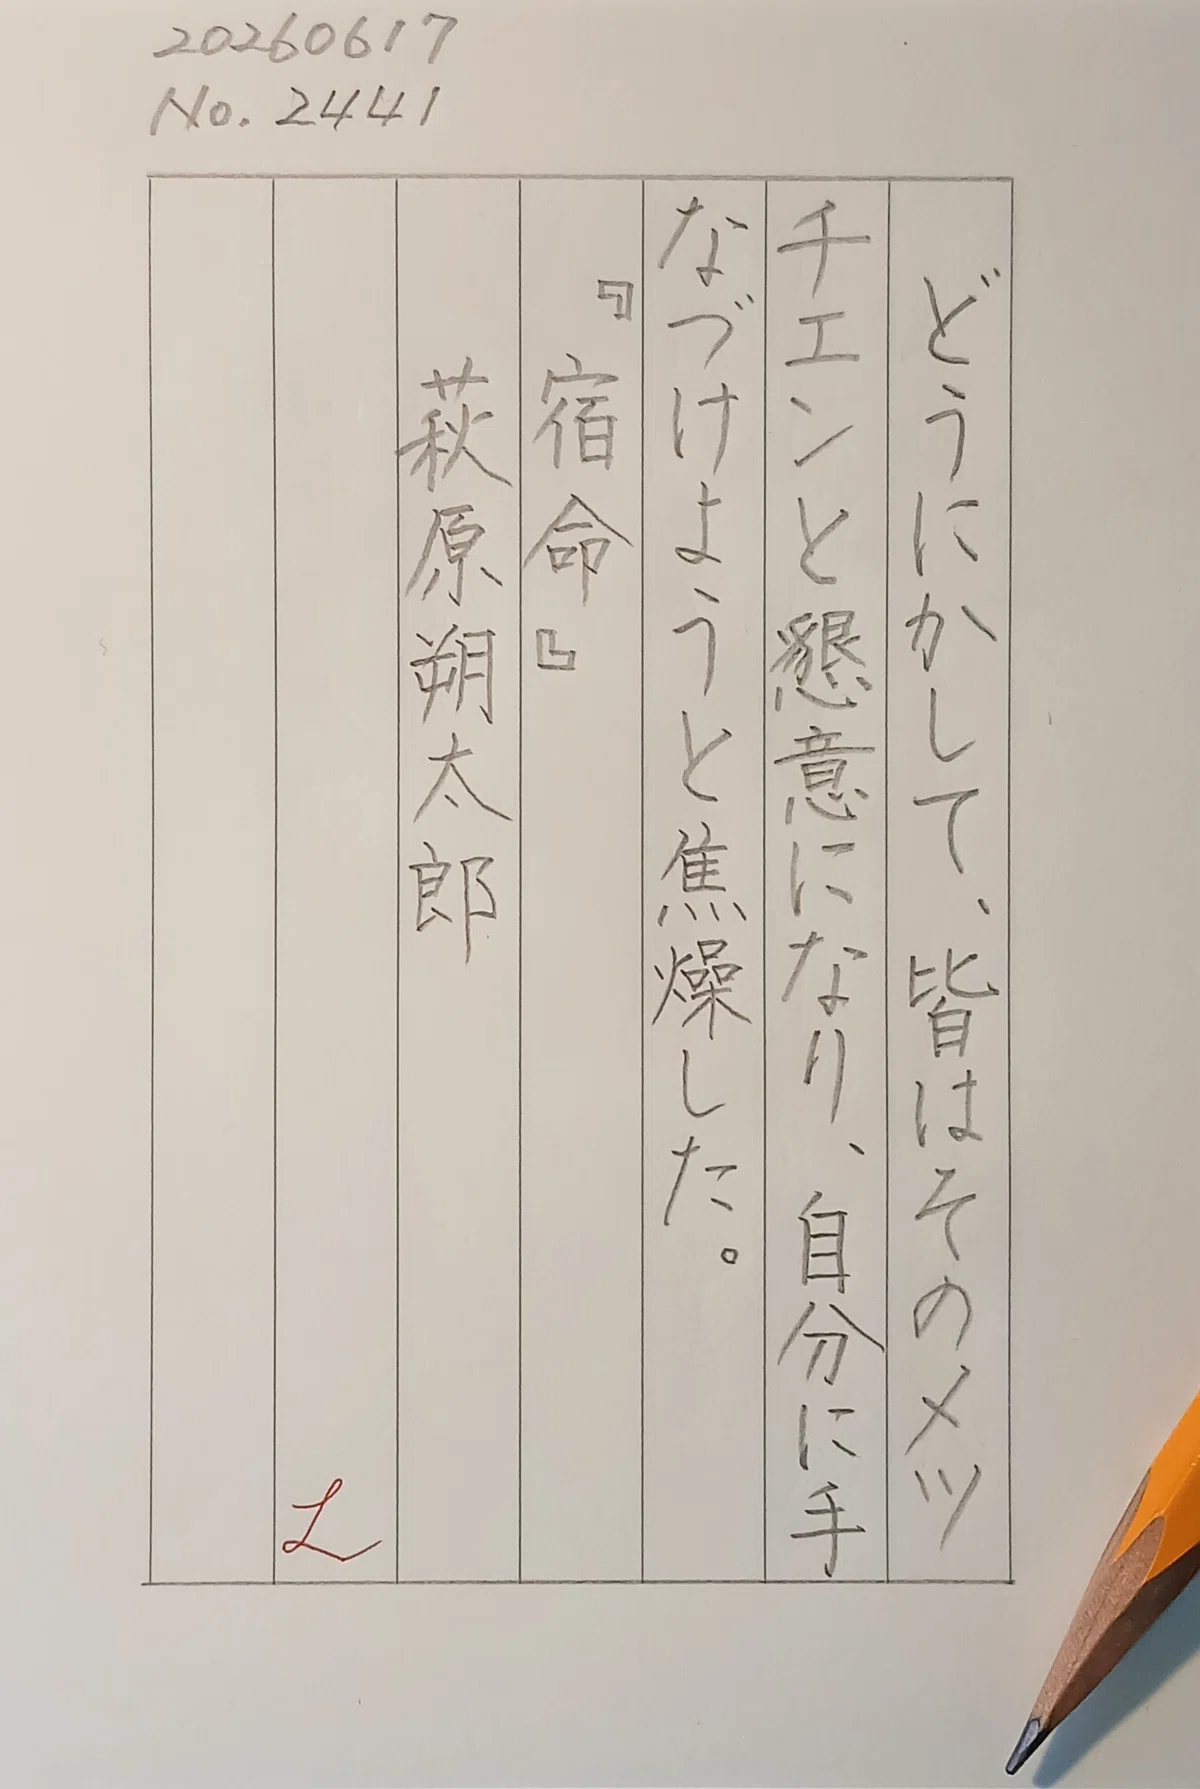 20260617
No. 2441
どうにかして、皆はそのメツ
チエンと懇意になり、自分に手
なづけようと焦燥した。
『宿命』
萩原朔太郎
L